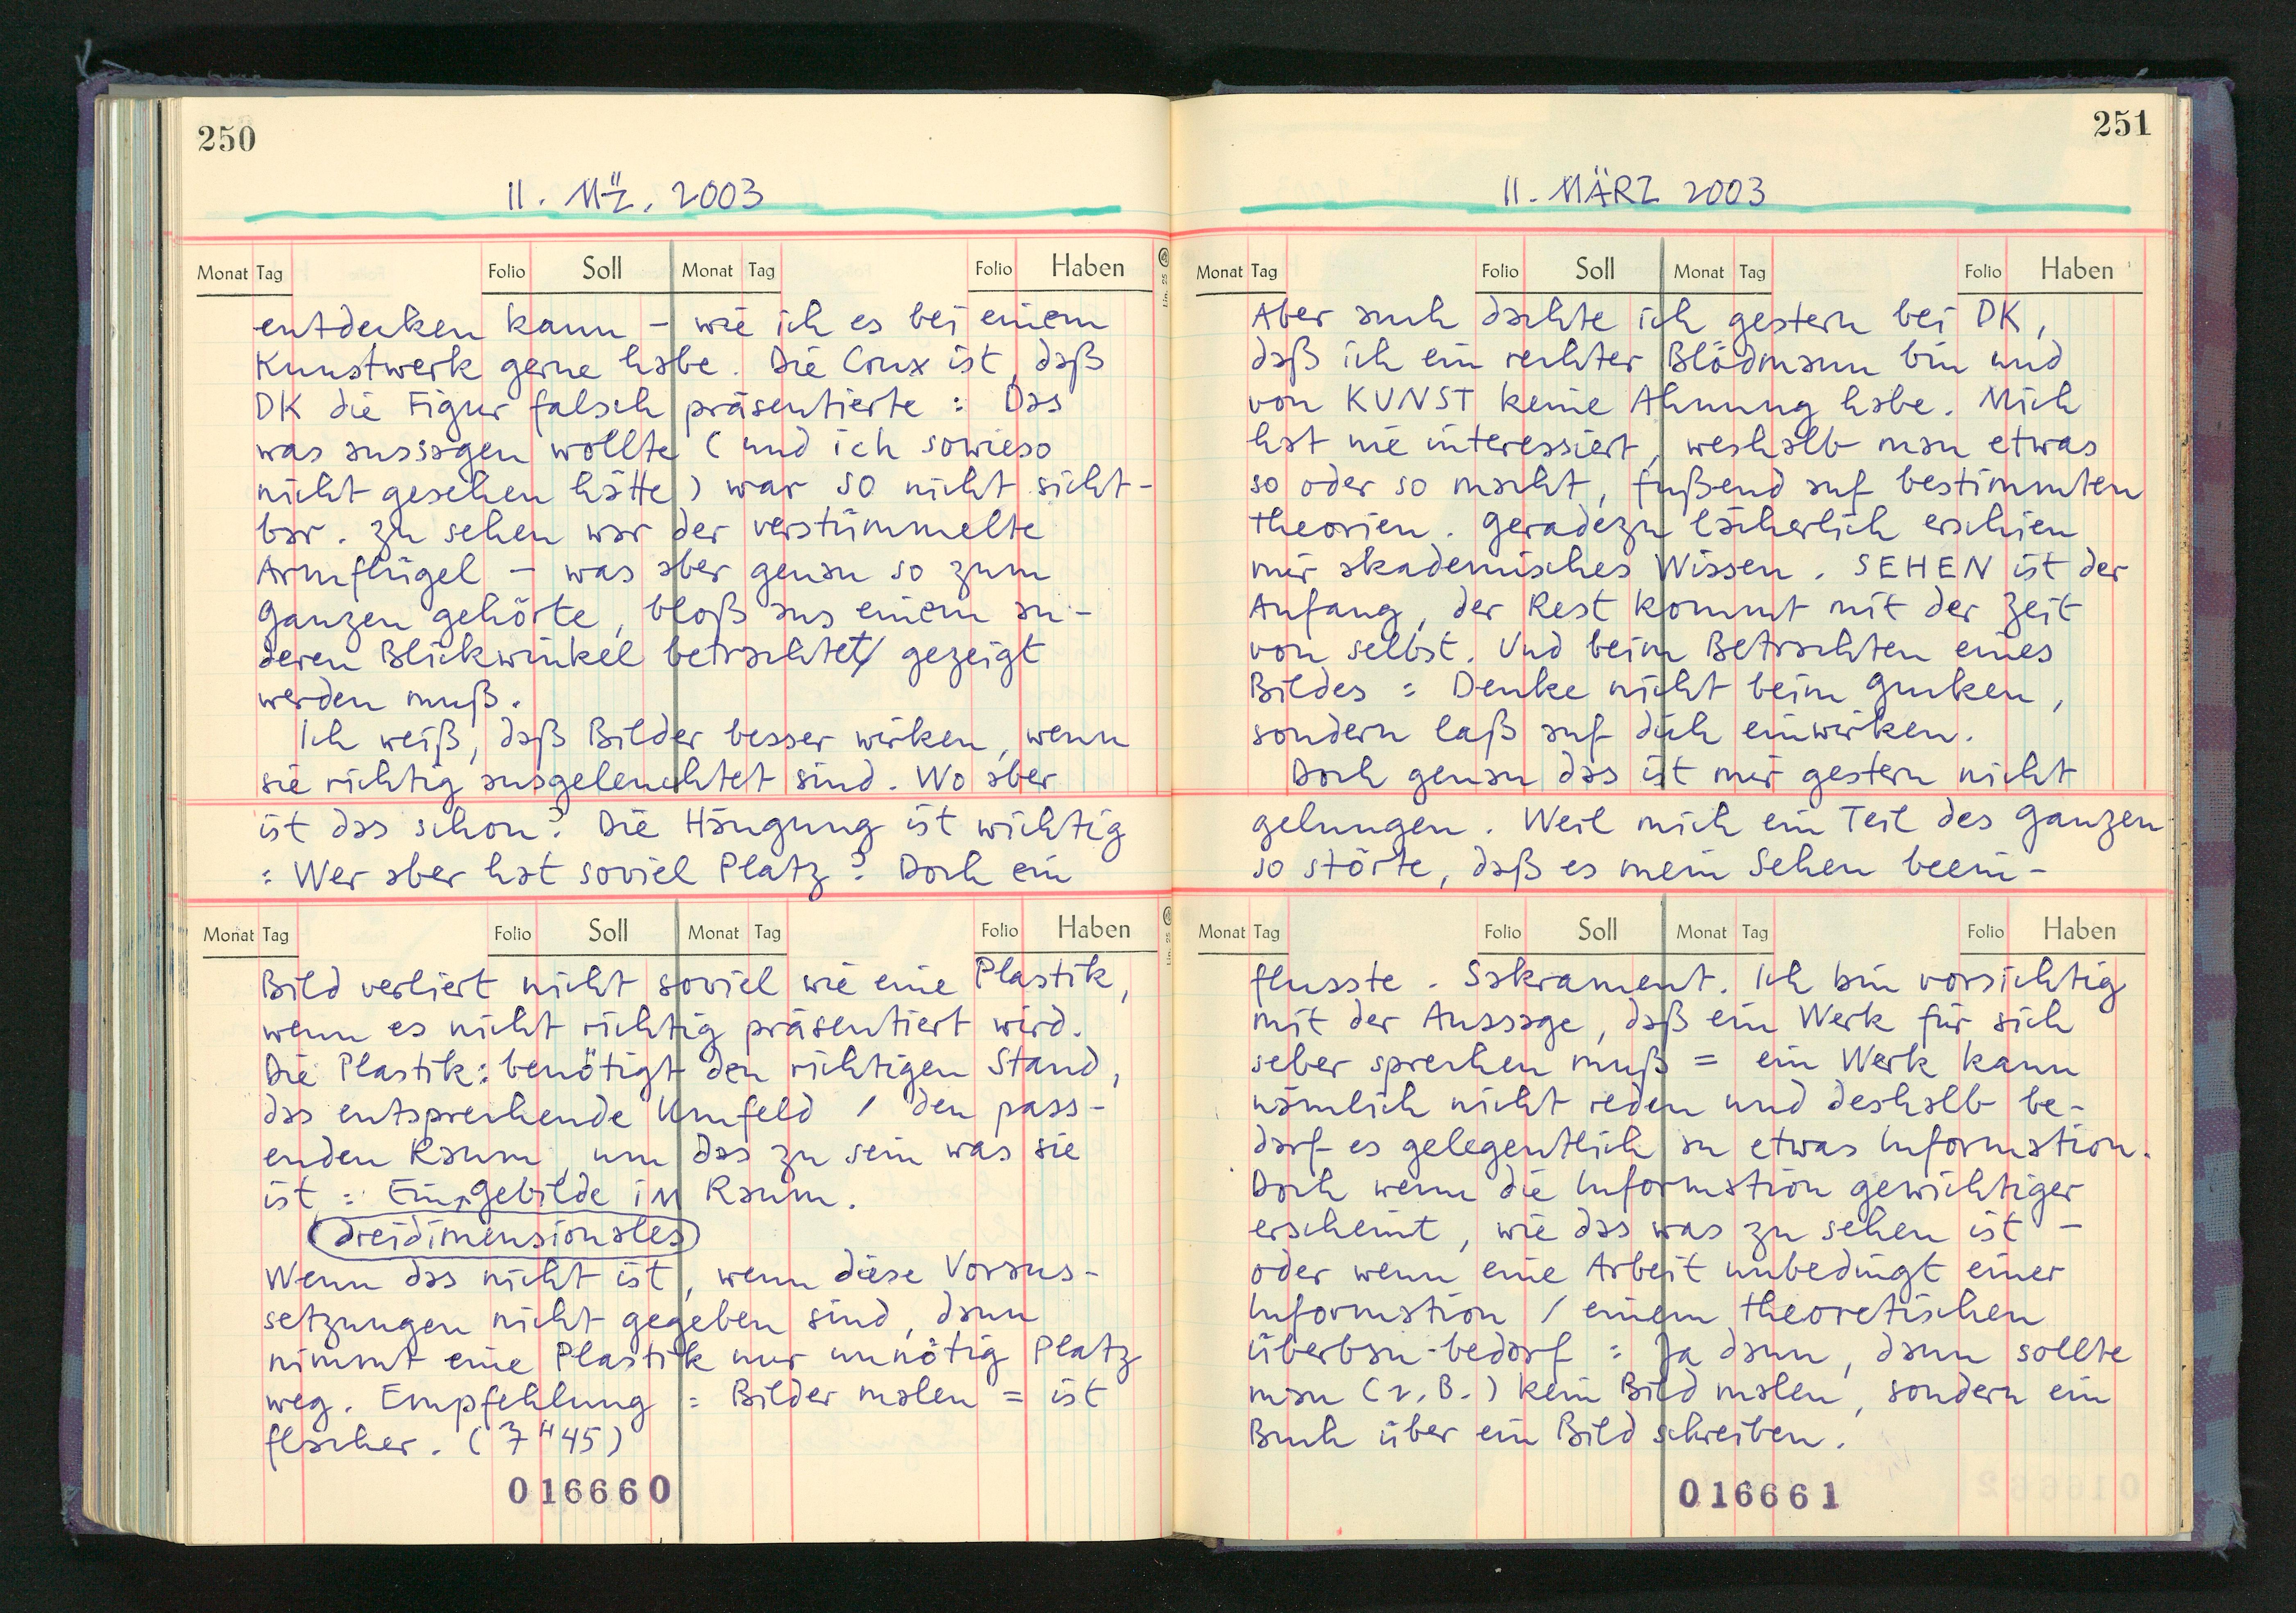 250
11. MÄZ. 2003
Monat Tag Folio Soll Monat Tag Folio Haben
entdecken kann – wie ich es bei einem
Kunstwerk gerne habe. Die Crux ist, daß
DK die Figur falsch präsentierte: Das
was aussagen wollte (und ich sowieso
nicht gesehen hätte) war SO nicht sicht-
bar. Zu sehen war der verstümmelte
Armflügel – was aber genau so zum
Ganzen gehörte, bloß aus einem an-
deren Blickwinkel betrachtet/ gezeigt
werden muß.
Ich weiß, daß Bilder besser wirken, wenn
sie richtig ausgeleuchtet sind. Wo aber
ist das schon? Die Hängung ist wichtig
: Wer aber hat soviel Platz? Doch ein
Monat Tag Folio Soll Monat Tag Folio Haben
Bild verliert nicht soviel wie eine Plastik,
wenn es nicht richtig präsentiert wird.
Die Plastik: benötigt den richtigen Stand,
das entsprechende Umfeld / den pass-
enden Raum, um das zu sein was sie
ist : Ein Gebilde iM Raum.
dreidimensionales
Wenn das nicht ist, wenn diese Voraus-
setzungen nicht gegeben sind, dann
nimmt eine Plastik nur unnötig Platz
weg. Empfehlung : Bilder malen = ist
flacher. (7 H 45)
016660
251
11. MÄRZ 2003
Monat Tag Folio Soll Monat Tag Folio Haben
Aber auch dachte ich gestern bei DK,
daß ich ein rechter Blödmann bin und
von KUNST keine Ahnung habe. Mich
hat nie interessiert, weshalb man etwas
so oder so macht, fußend auf bestimmten
Theorien. Geradezu lächerlich erschien
mir akademisches Wissen. SEHEN ist der
Anfang, der Rest kommt mit der Zeit
von selbst. Und beim Betrachten eines
Bildes : Denke nicht beim Gucken,
sondern laß auf dich einwirken.
Doch genau das ist mir gestern nicht
gelungen. Weil mich ein Teil des Ganzen
so störte, daß es mein Sehen beein-
Monat Tag Folio Soll Monat Tag Folio Haben
flusste. Sakrament. Ich bin vorsichtig
mit der Aussage, daß ein Werk für sich
selber sprechen muß = ein Werk kann
nämlich nicht reden und deshalb be-
darf es gelegentlich an etwas Information.
Doch wenn die Information gewichtiger
erscheint, wie das was zu sehen ist –
oder wenn eine Arbeit unbedingt einer
Information / einem theoretischen
Überbau bedarf : Ja dann, dann sollte
man (z.B.) kein Bild malen, sondern ein
Buch über ein Bild schreiben.
016661